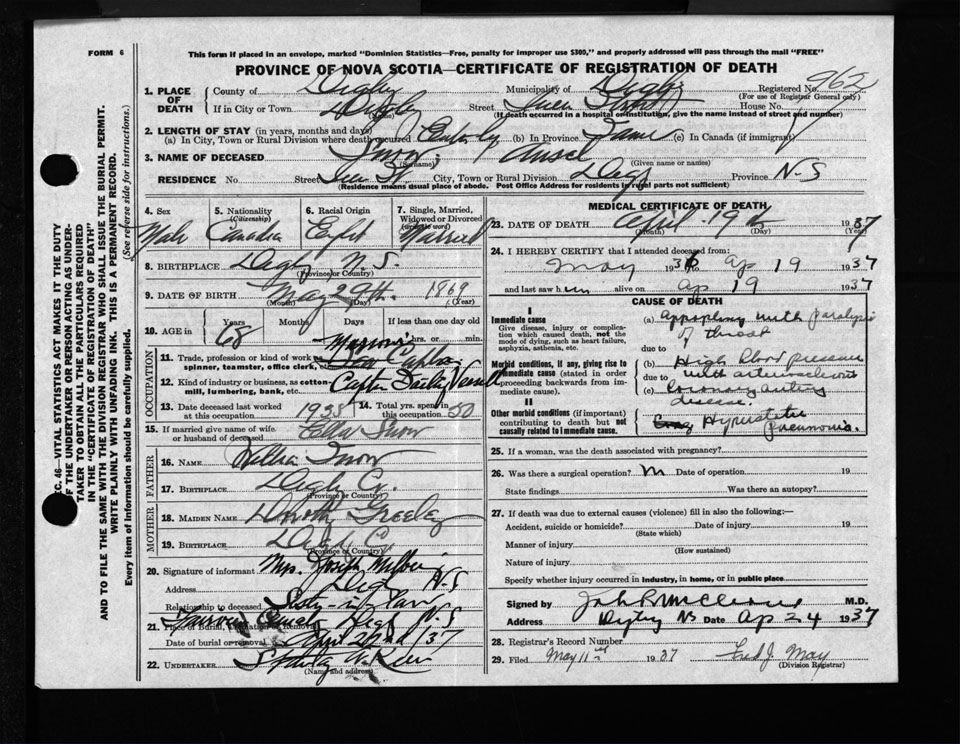 FORM 6
This form if placed in an envelope, marked "Dominion Statistics—Free, penalty for improper use $300," and properly addressed will pass through the mail "FREE"
PROVINCE OF NOVA SCOTIA—CERTIFICATE OF REGISTRATION OF DEATH
962
1. PLACE OF DEATH
County of Digby Municipality of Digby Registered No.
(For use of Registrar General only)
If in City or Town Digby Street Queen Street House No.
(Name) (If death occurred in a hospital or institution, give the name instead of street and number)
2. LENGTH OF STAY (in years, months and days)
(a) In City, Town or Rural Division where death occurred (b) In Province Same (c) In Canada (if immigrant)
3. NAME OF DECEASED Snow, Ansel
(Surname) (Given name or names)
RESIDENCE No. Street Queen St. City, Town or Rural Division Digby Province N-S
(Residence means usual place of abode. Post Office Address for residents in rural parts not sufficient)
SEC. 46—VITAL STATISTICS ACT MAKES IT THE DUTY
OF THE UNDERTAKER OR PERSON ACTING AS UNDER-
TAKER TO OBTAIN ALL THE PARTICULARS REQUIRED
IN THE "CERTIFICATE OF REGISTRATION OF DEATH"
AND TO FILE THE SAME WITH THE DIVISION REGISTRAR WHO SHALL ISSUE THE BURIAL PERMIT.
WRITE PLAINLY WITH UNFADING INK. THIS IS A PERMANENT RECORD.
Every item of Information should be carefully supplied. (See reverse side for instructions.)
4. Sex 5. Nationality (Citizenship) 6. Racial Origin 7. Single, Married, Widowed or Divorced (write the word)
Male Canadian English Married
8. BIRTHPLACE Digby N.S.
(Province or Country)
9. DATE OF BIRTH May 29th. 1869
(Month) (Day) (Year)
10. AGE in Years Months Days If less than one day old
68 hrs. or min.
OCCUPATION
11. Trade, profession or kind of work as spinner, teamster, office clerk, etc.
12. Kind of industry or business, as cotton mill, lumbering, bank, etc. Captain Sailing Vessel
13. Date deceased last worked at this occupation 1935 14. Total yrs. spent in this occupation 50
15. If married give name of wife or husband of deceased Ella Snow
FATHER
16. NAME Snow
17. BIRTHPLACE Digby Co.
(Province or Country)
MOTHER
18. MAIDEN NAME Greeley
19. BIRTHPLACE Digby Co.
(Province or Country)
20. Signature of informant Mrs. Joseph
Address Digby N.S
Relationship to deceased Sister-in-law
21. Place of Burial, Cremation or Removal Digby N.S
Date of burial or removal April 22nd /37
22. UNDERTAKER
(Name and address)
MEDICAL CERTIFICATE OF DEATH
23. DATE OF DEATH April 19th 1937
(Month) (Day) (Year)
24. I HEREBY CERTIFY that I attended deceased from:
May 1936 to Ap 19 1937
and last saw him alive on Ap 19 1937
CAUSE OF DEATH
I
Immediate cause
Give disease, injury or complication which caused death, not the mode of dying, such as heart failure, asphyxia, asthenia, etc.
(a) Appoplexy with paralysis
of throat
due to
Morbid conditions, if any, giving rise to immediate cause (stated in order proceeding backwards from immediate cause).
(b) High blood pressure
due to with arteriosclerosis
(c) Coronary artery
disease.
II
Other morbid conditions (if important) contributing to death but not causally related to immediate cause.
Hypostatic
pneumonia.
25. If a woman, was the death associated with pregnancy?
26. Was there a surgical operation? Date of operation 19
State findings Was there an autopsy?
27. If death was due to external causes (violence) fill in also the following:—
Accident, suicide or homicide? Date of injury 19
(State which)
Manner of injury
(How sustained)
Nature of injury
Specify whether injury occurred in industry, in home, or in public place
Signed by M.D.
Address Digby NS Date Ap 24 1937
28. Registrar's Record Number
29. Filed May 11th 1937 Fred J. May
(Division Registrar)